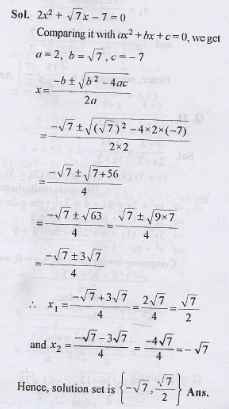 Sol. 2x² + √7 x − 7 = 0
Comparing it with ax² + bx + c = 0, we get
a = 2, b = √7, c = − 7
x = (−b ± √(b² − 4ac)) / 2a
= (−√7 ± √((√7)² − 4×2×(−7))) / 2×2
= (−√7 ± √(7+56)) / 4
= (−√7 ± √63) / 4 = (√7 ± √(9×7)) / 4
= (−√7 ± 3√7) / 4
∴ x₁ = (−√7 + 3√7) / 4 = 2√7 / 4 = √7 / 2
and x₂ = (−√7 − 3√7) / 4 = −4√7 / 4 = − √7
Hence, solution set is {−√7, √7 / 2} Ans.